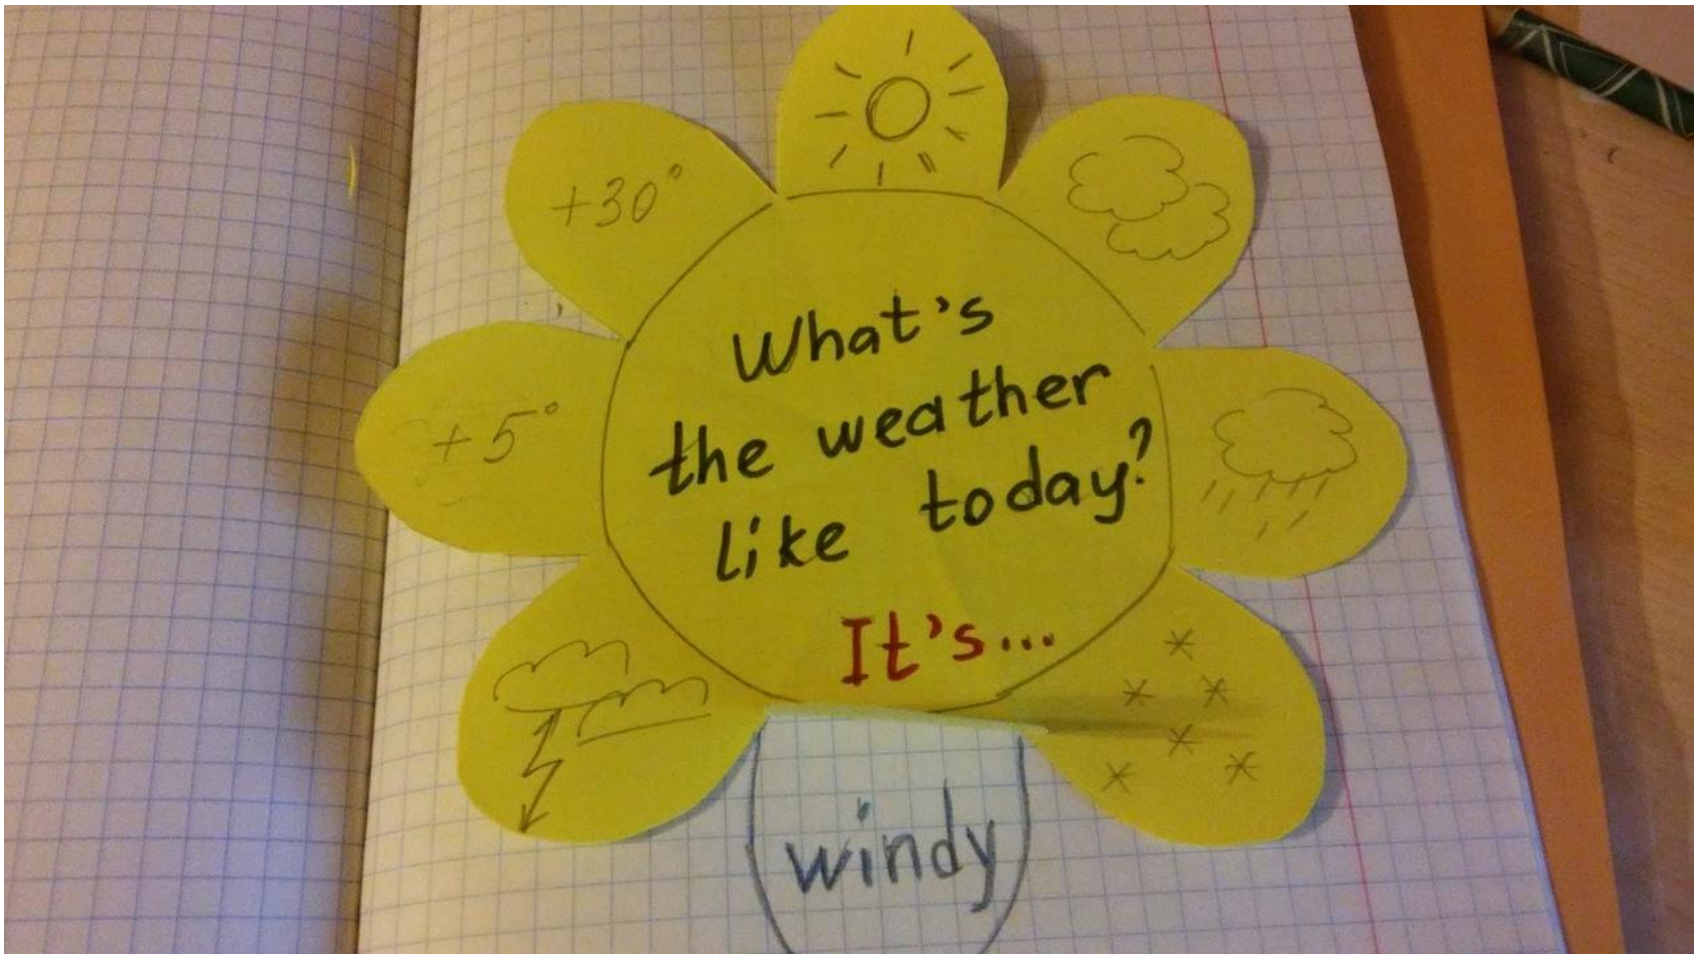 +30°
+5°
What's
the weather
like today?
It's...
windy